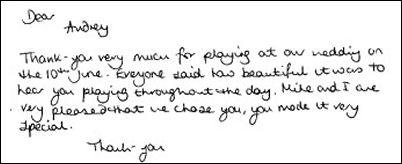 Dear
Audrey
Thank-you very much for playing at our wedding on
the 10th June. Everyone said how beautiful it was to
hear you playing throughout the day. Mike and I are
very pleased that we chose you, you made it very
special.
Thank-you